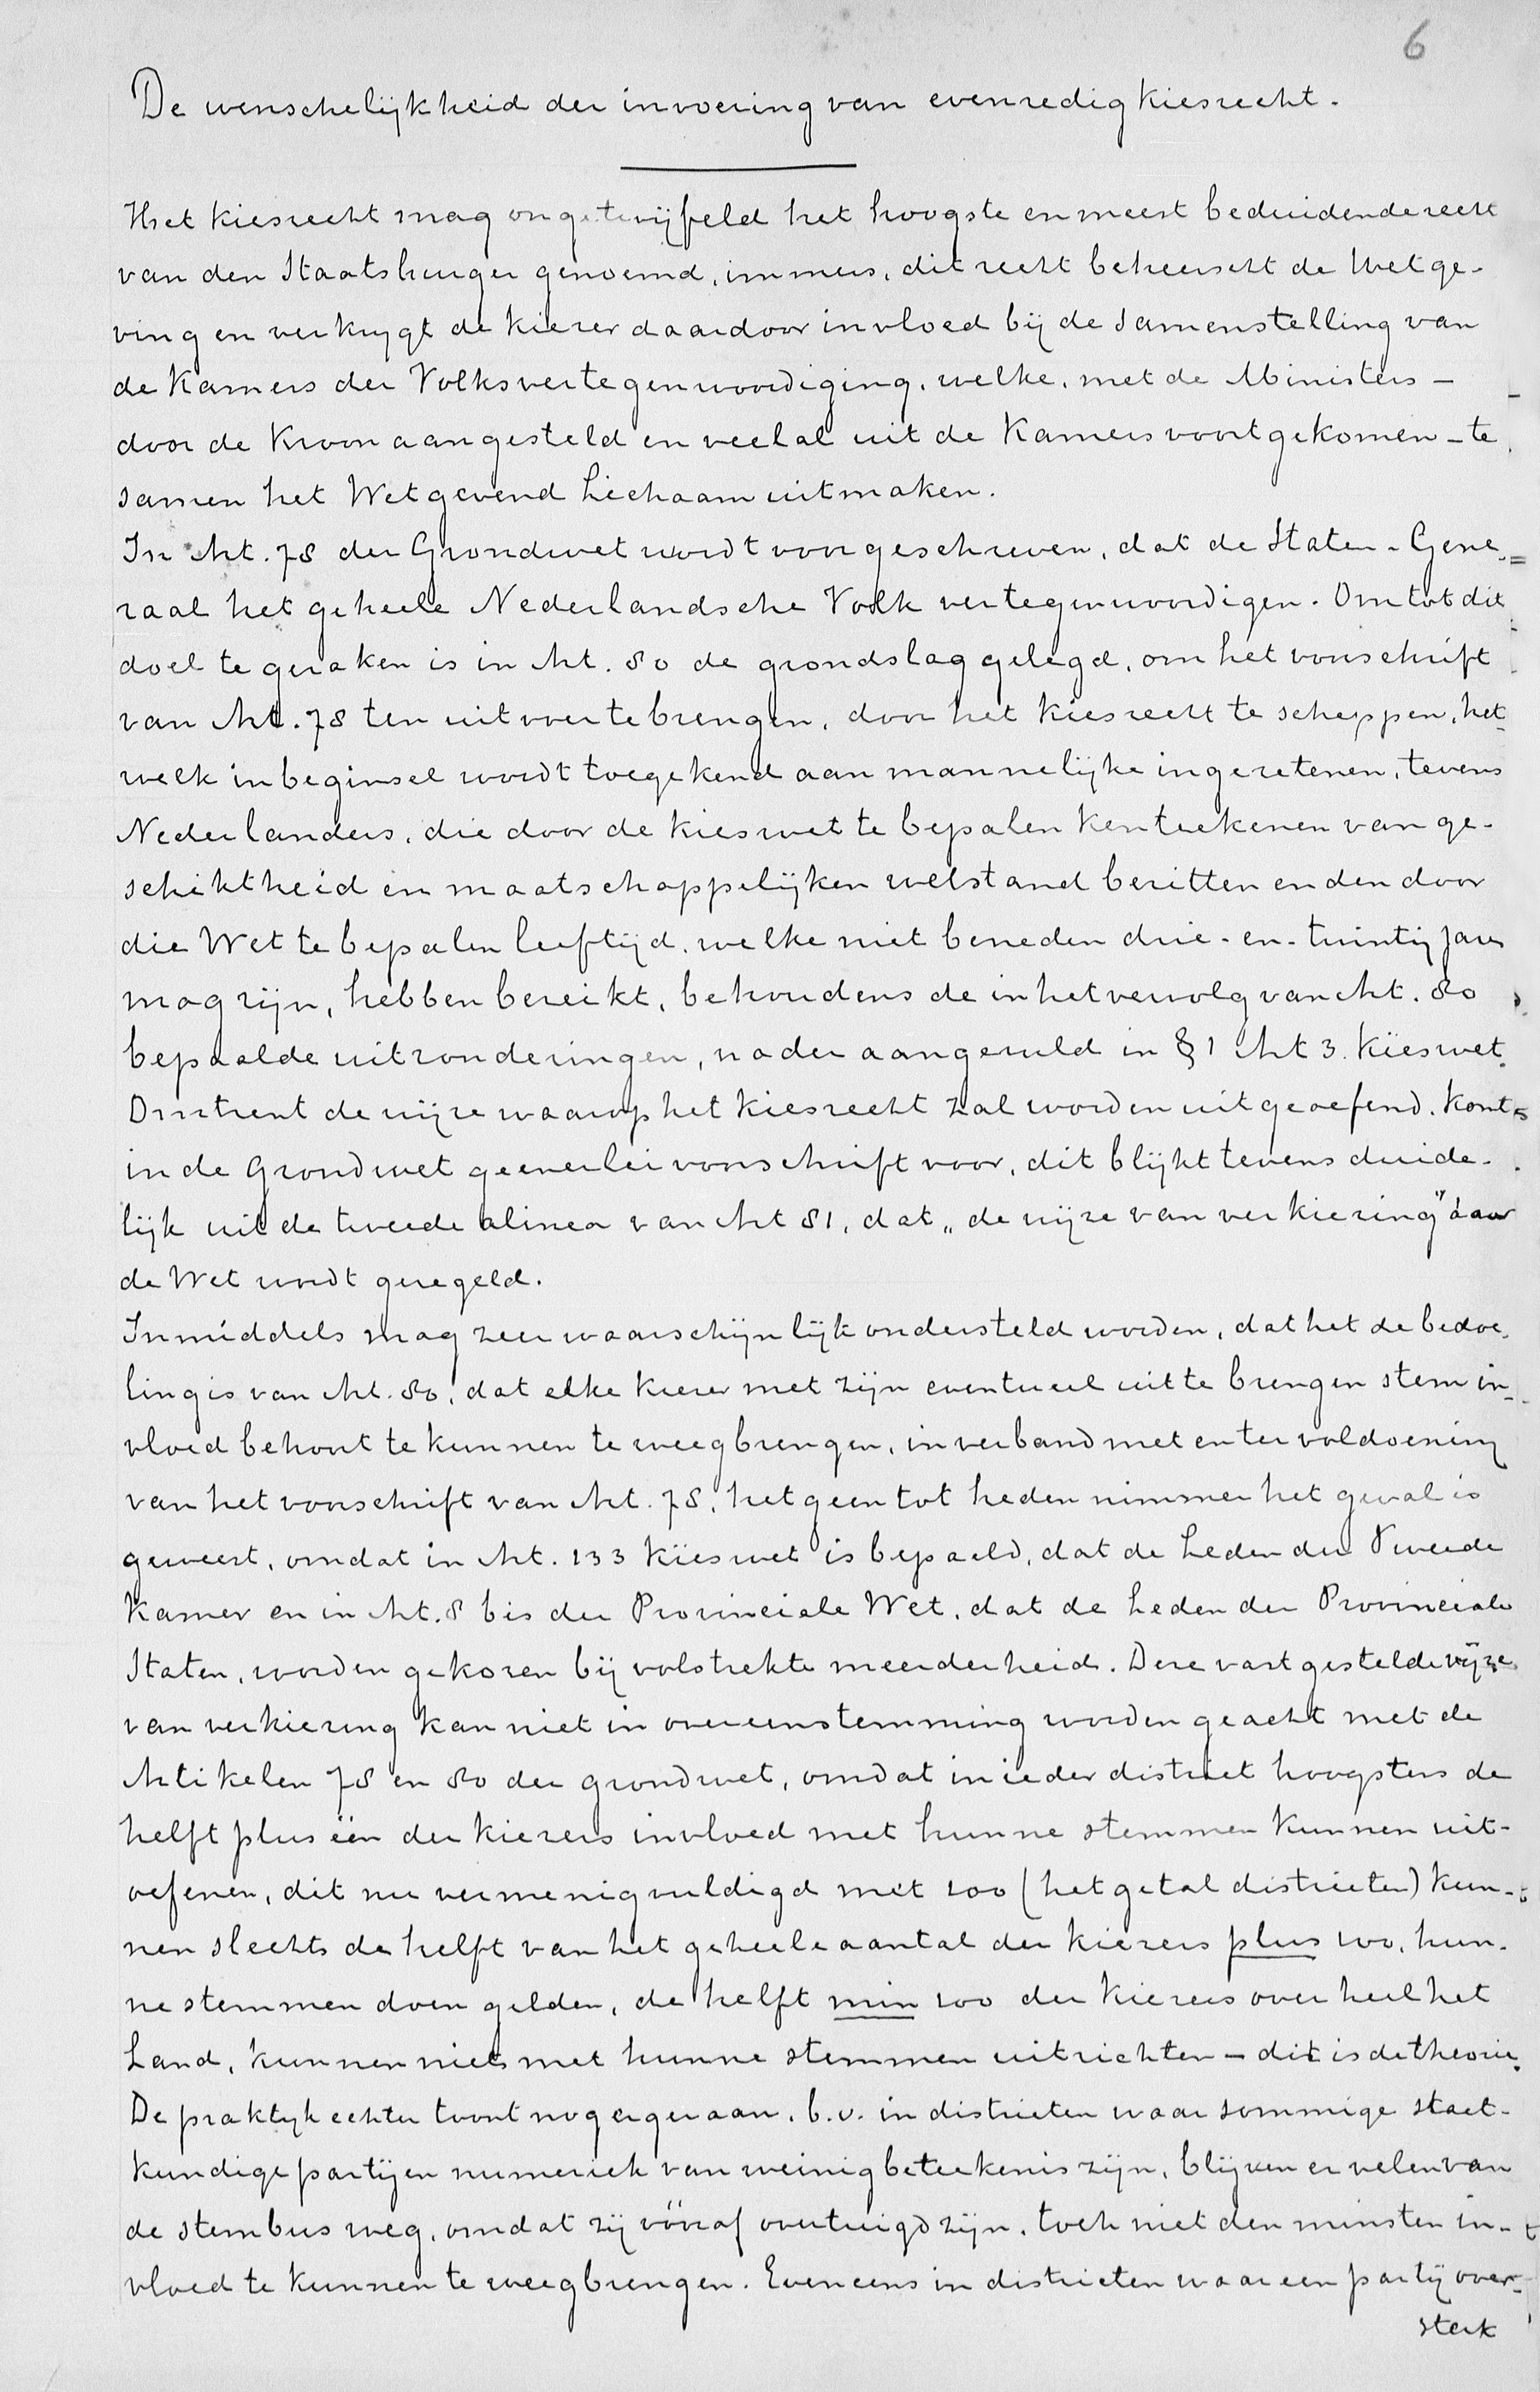 6
De wenschelijkheid der invoering van evenredig kiesrecht.
Het kiesrecht mag ongetwijfeld het hoogste en meest beduidende recht
van den Staatsburger genoemd, immers, dit recht beheerscht de Wetge-
ving en verkrygt de kiezer daardoor invloed bij de samenstelling van
de Kamers der Volksvertegenwoordiging, welke, met de Ministers –
door de Kroon aangesteld en veelal uit de Kamers voortgekomen – te
samen het Wetgevend Lichaam uitmaken.
In Art. 78 der Grondwet wordt voorgeschreven, dat de Staten-Gene-
raal het geheele Nederlandsche Volk vertegenwoordigen. Om tot dit
doel te geraken is in Art. 80 de grondslag gelegd, om het voorschrift
van Art. 78 ten uitvoer te brengen, door het kiesrecht te scheppen, het-
welk in beginsel wordt toegekend aan mannelijke ingezetenen, tevens
Nederlanders, die door de kieswet te bepalen kenteekenen van ge-
schiktheid en maatschappelijken welstand bezitten en den door
die Wet te bepalen leeftijd, welke niet beneden drie-en-twintig jaren
mag zijn, hebben bereikt, behoudens de in het vervolg van Art. 80
bepaalde uitzonderingen, nader aangevuld in § 1 Art 3. Kieswet.
Omtrent de wijze waarop het kiesrecht zal worden uitgeoefend, komt
in de Grondwet geenerlei voorschrift voor, dit blijkt tevens duide-
lijk uit de tweede alinea van Art 81, dat „de wijze van verkiezing" door
de Wet wordt geregeld.
Inmiddels mag zeer waarschijnlijk ondersteld worden, dat het de bedoe-
ling is van Art. 80, dat elke kiezer met zijn eventueel uit te brengen stem in-
vloed behoort te kunnen te weeg brengen, in verband met en ter voldoening
van het voorschrift van Art. 78, hetgeen tot heden nimmer het geval is
geweest, omdat in Art. 133 Kieswet is bepaald, dat de Leden der Tweede
Kamer en in Art. 8 bis der Provinciale Wet, dat de Leden der Provinciale
Staten, worden gekozen bij volstrekte meerderheid. Deze vastgestelde wijze
van verkiezing kan niet in overeenstemming worden geacht met de
Artikelen 78 en 80 der grondwet, omdat in ieder district hoogstens de
helft plus één der kiezers invloed met hunne stemmen kunnen uit-
oefenen, dit nu vermenigvuldigd met 100 (het getal districten) kun-
nen slechts de helft van het geheele aantal der kiezers plus 100, hun-
ne stemmen doen gelden, de helft min 100 der kiezers over heel het
Land, kunnen niets met hunne stemmen uitrichten – dit is de theorie.
De praktyk echter toont nog erger aan, b.v. in districten waar sommige staat-
kundige partijen numeriek van weinig beteekenis zijn, blijven er velen van
de stembus weg, omdat zij vóóraf overtuigd zijn, toch niet den minsten in-
vloed te kunnen te weeg brengen. Eveneens in districten waar een partij over-
sterk